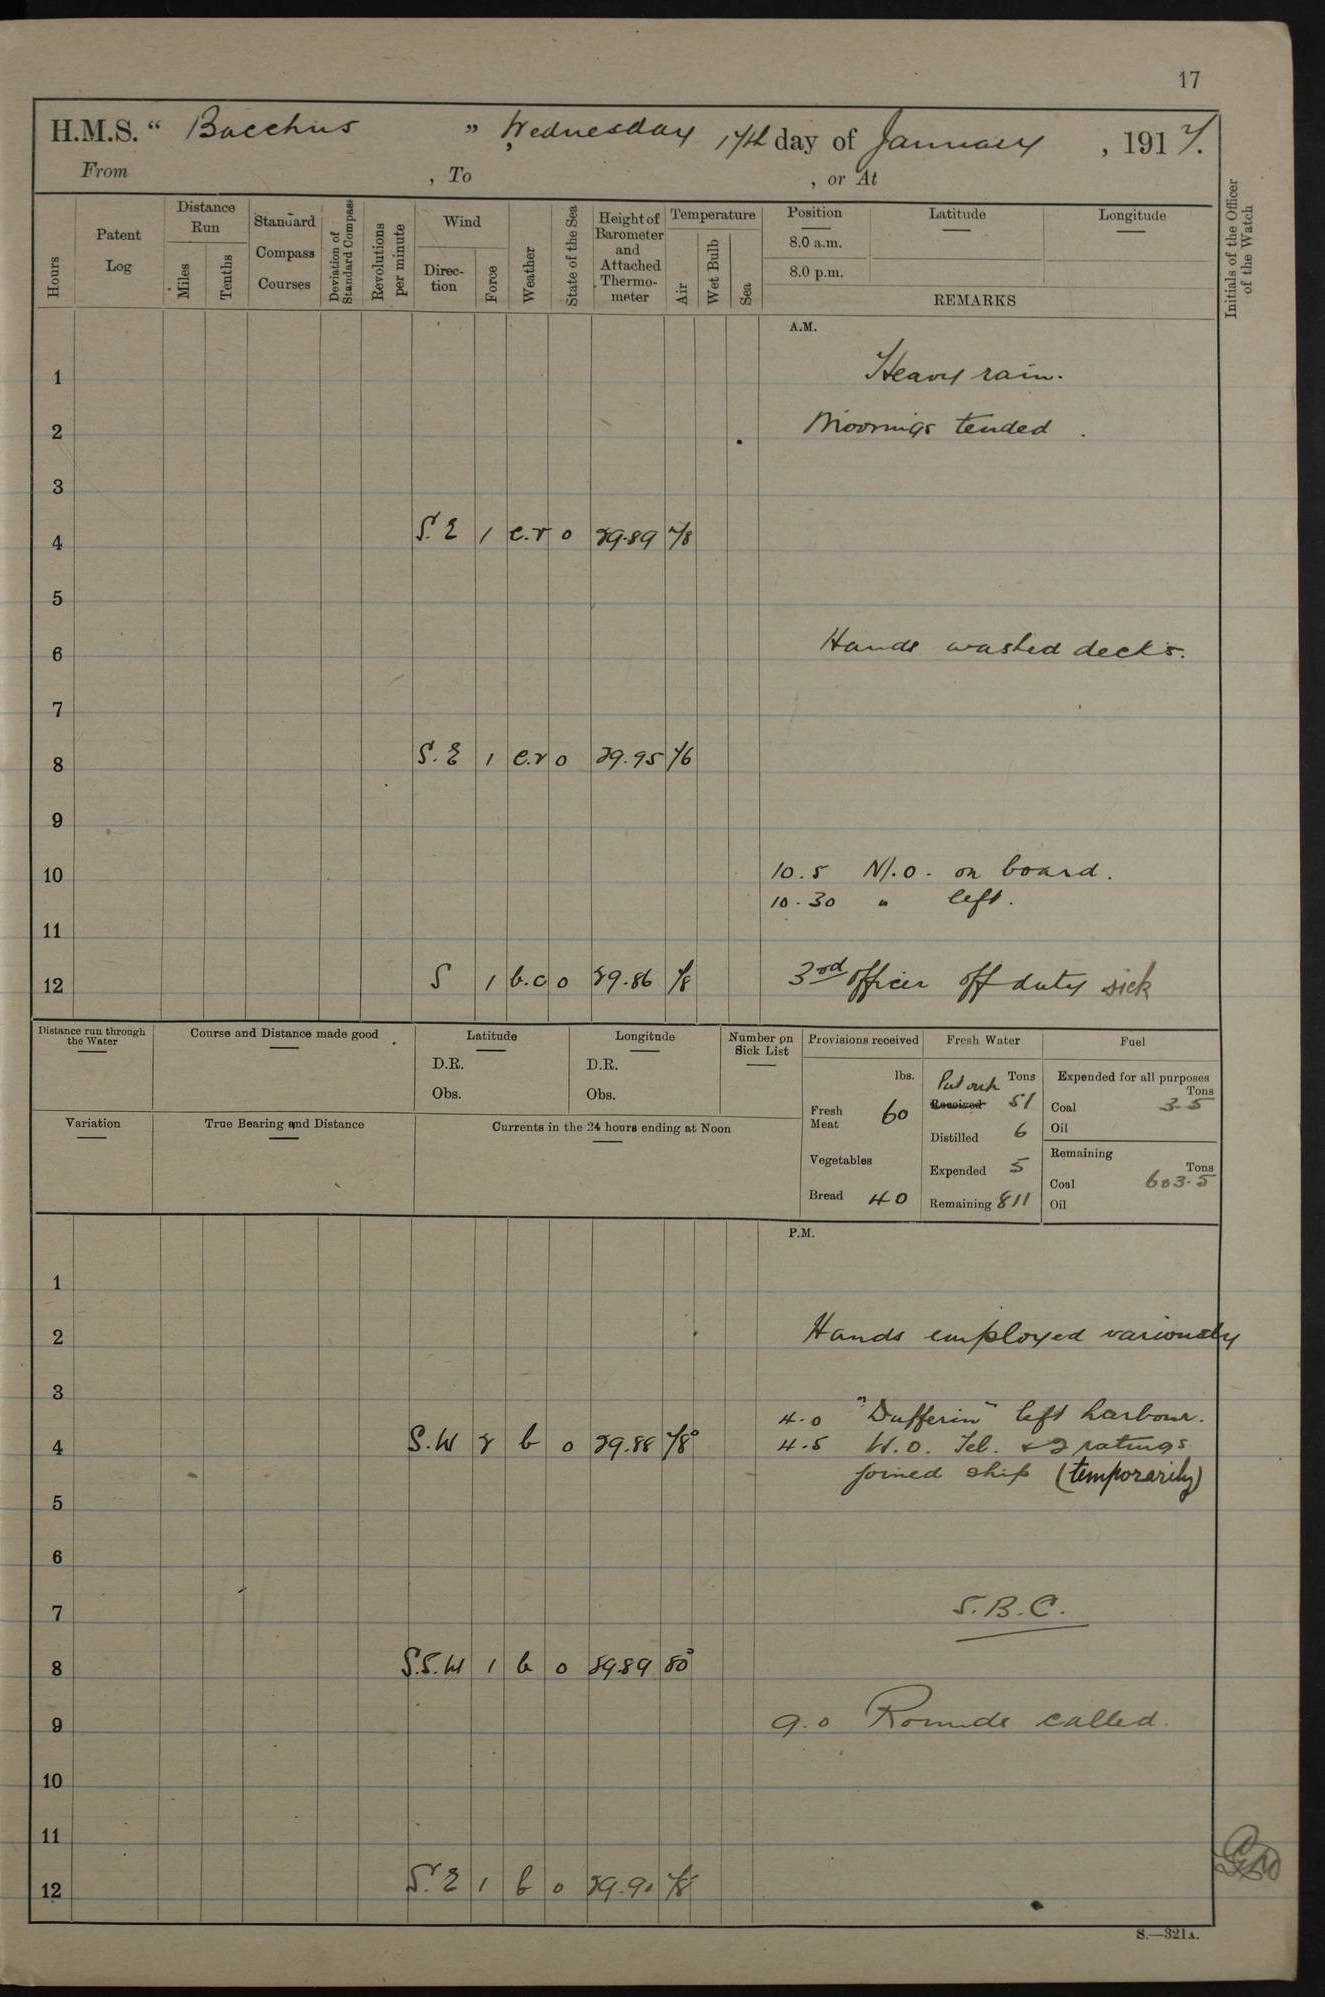 17
H.M.S. " Bacchus " Wednesday 17th day of January , 1917.
From , To , or At
Hours
Patent Log
Distance Run
Miles
Tenths
Standard Compass Courses
Deviation of Standard Compass
Revolutions per minute
Wind
Direction
Force
Weather
State of the Sea
Height of Barometer and Attached Thermometer
Temperature
Air
Wet Bulb
Sea
Position
8.0 a.m.
8.0 p.m.
Latitude
Longitude
REMARKS
Initials of the Officer of the Watch
A.M.
1 Heavy rain.
2 Moorings tended .
3
4 S.E 1 c.r 0 29.89 78
5
6 Hands washed decks.
7
8 S.E 1 c.r 0 29.95 76
9
10 10.5 M.O. on board.
10.30 " left.
11
12 S 1 b.c 0 29.86 78 3rd officer off duty sick
Distance run through the Water
Course and Distance made good
Latitude
D.R.
Obs.
Longitude
D.R.
Obs.
Number on Sick List
Variation
True Bearing and Distance
Currents in the 24 hours ending at Noon
Provisions received
lbs.
Fresh Meat 60
Vegetables
Bread 40
Fresh Water
Tons
Put out
Received 51
Distilled 6
Expended 5
Remaining 811
Fuel
Expended for all purposes
Tons
Coal 3.5
Oil
Remaining
Tons
Coal 603.5
Oil
P.M.
1
2 Hands employed variously
3
4.0 "Dufferin" left harbour.
4 S.W 2 b 0 29.88 78° 4.5 W.O. Tel. & 2 ratings
joined ship (temporarily)
5
6
7 S.B.C.
8 S.S.W 1 b 0 29.89 80°
9 9.0 Rounds called.
10
11
12 S.E 1 b 0 29.90 78
S.—321A.